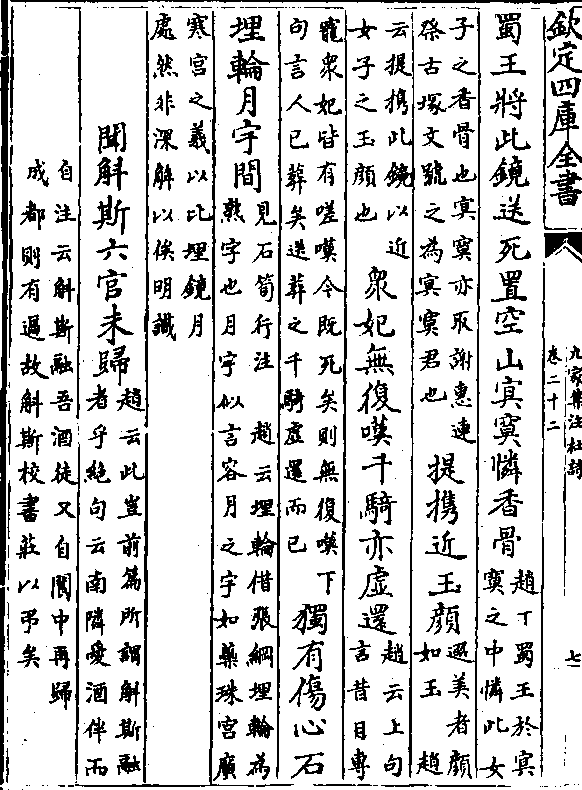 欽定四庫全書
九家集注杜詩
卷二十二
七
蜀王將此鏡送死置空山㝠寞憐香骨
趙丁蜀王於㝠
寞之中憐此女
子之香骨也㝠寞亦取謝惠連
祭古塚文號之為㝠寞君也
提攜近玉顔
選美者顔
如玉 趙
云提攜此鏡以近
女子之玉顔也
衆妃無復嘆千騎亦虚還
趙云上句
言昔日專
寵衆妃皆有嗟嘆今既死矣則無復嘆下
句言人已葬矣送葬之千騎虚還而已
獨有傷心石
埋輪月宇間
見石筍行注 趙云埋輪借張綱埋輪為
熟字也月宇似言容月之宇如蘂珠宮廣
寒宮之義以比埋鏡月
處然非深解以俟明識
聞斛斯六官未歸
趙云此豈前篇所謂斛斯融
者乎絶句云南隣愛酒伴而
自注云斛斯融吾酒徒又自閬中再歸
成都則有過故斛斯校書莊以弔矣